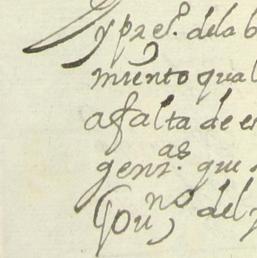 y pres.te dela b
miento qual
a falta de e
genr.as que
Gou.no del